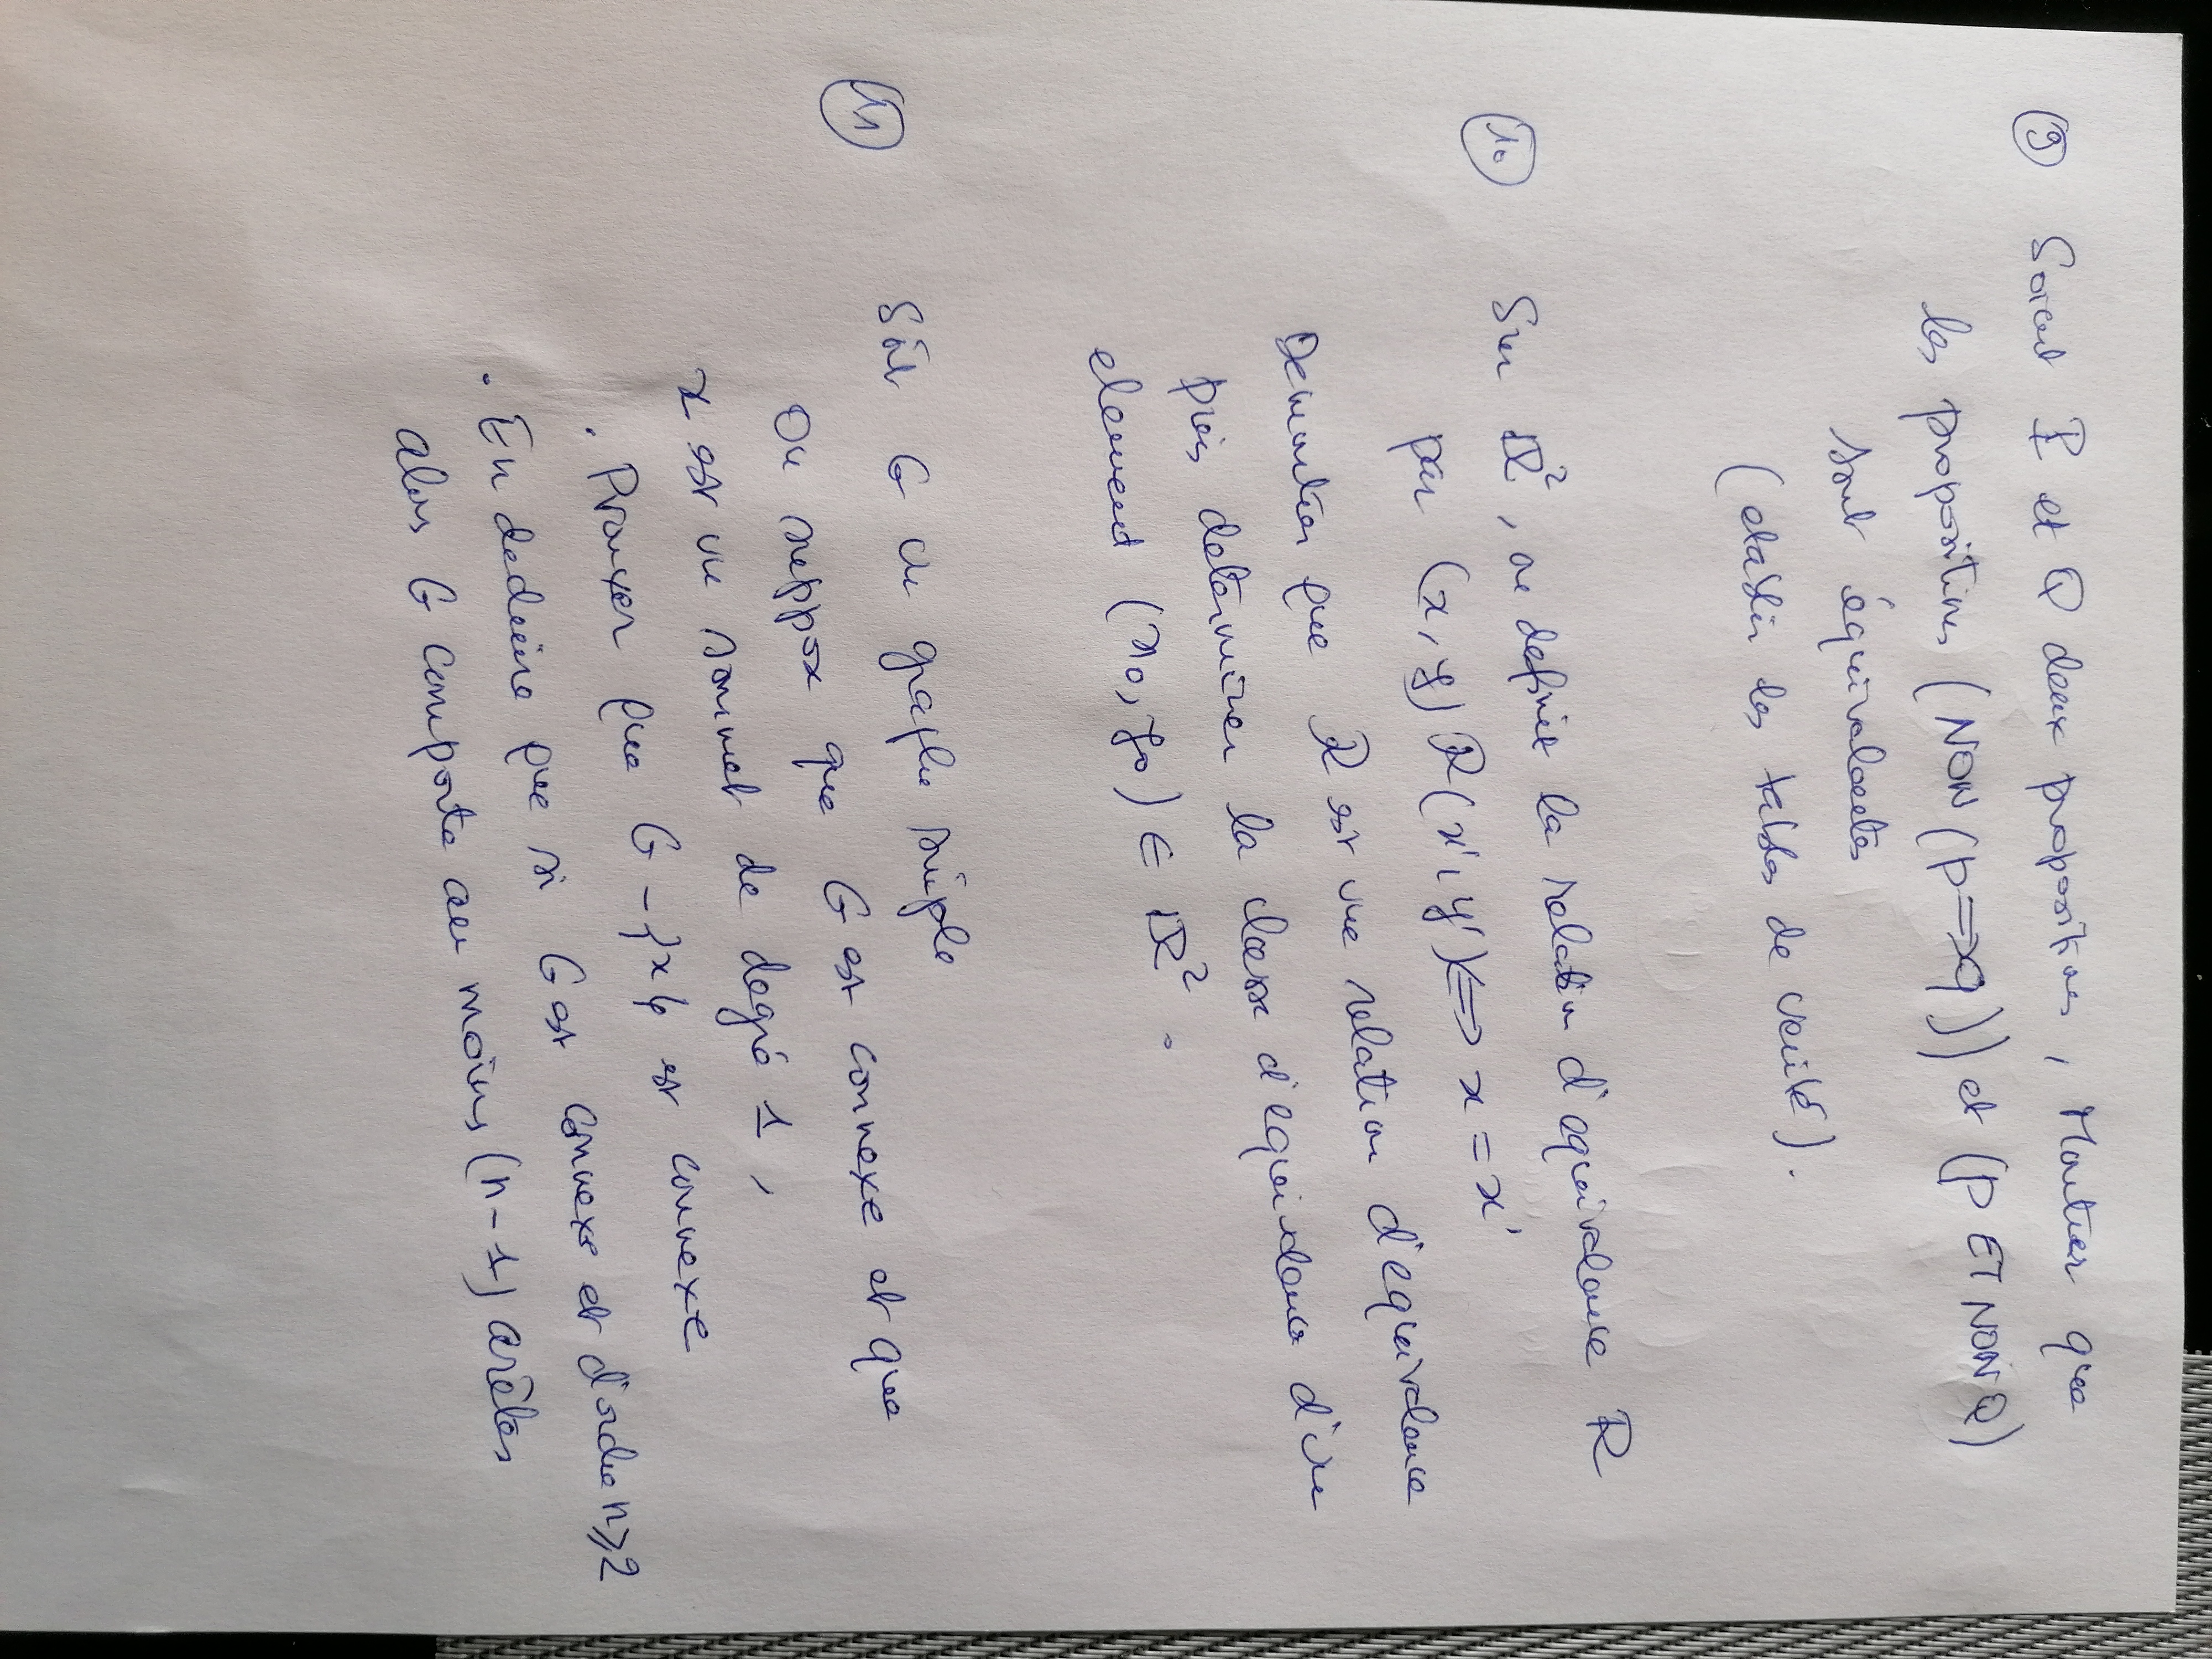 ⑨ Soient P et Q deux propositions, Montrer que
les propositions (NON (p => q)) et (P ET NON Q)
sont équivalentes
(etablir les tables de verité).
⑩ Sur ℝ², on definit la relation d'equivalence R
par (x, y) R (x', y') <=> x = x'
Demontrer que R est une relation d'equivalence
puis determiner la classe d'equivalence d'un
element (x₀, y₀) ∈ ℝ².
⑪ Soit G un graphe simple
On suppose que G est connexe et que
x est un sommet de degré 1,
. Prouver que G - {x} est connexe
. En deduire que si G est connexe et d'ordre n ⩾ 2
alors G comporte au moins (n - 1) arêtes